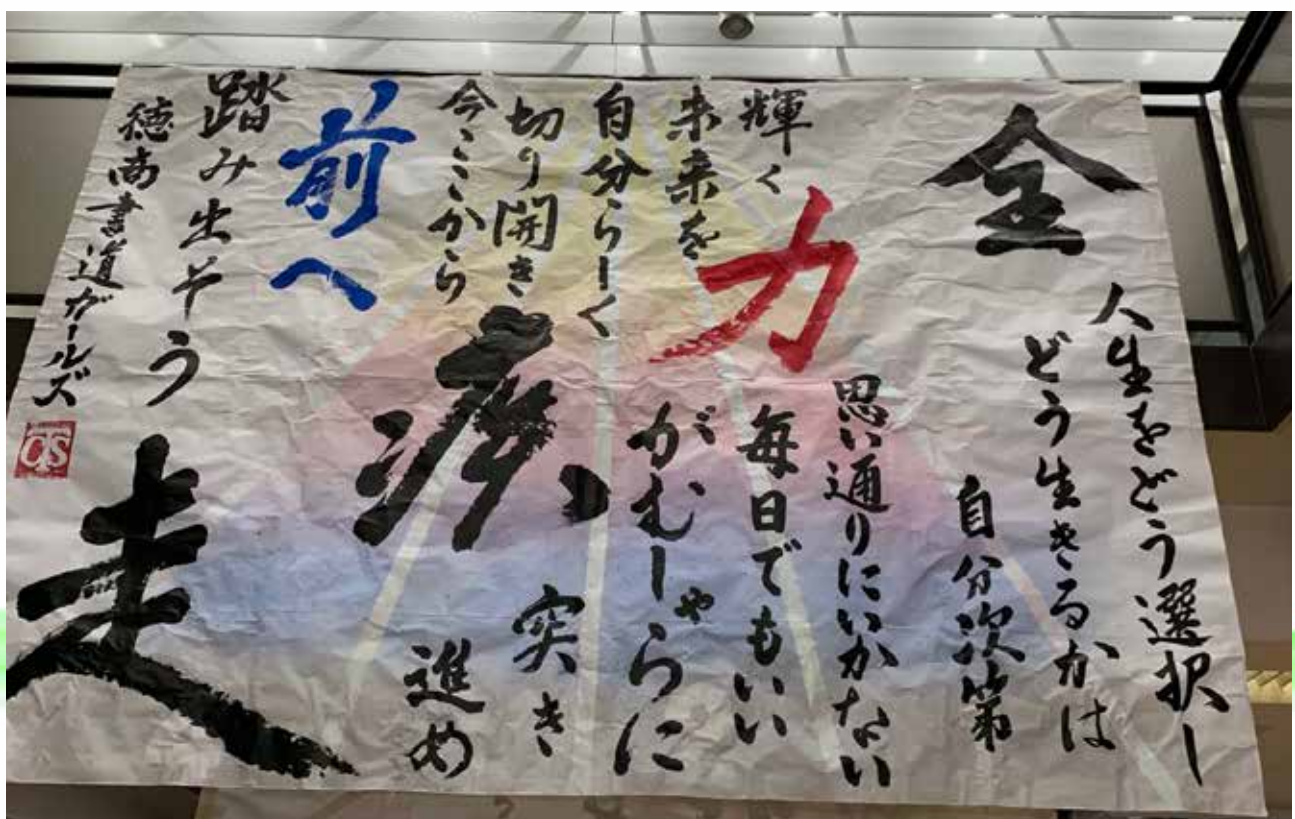 全
人生をどう選択し
どう生きるかは
自分次第
力
思い通りにいかない
毎日でもいい
がむしゃらに
突き
進め
疾
輝く
未来を
自分らしく
切り開き
今ここから
前へ
踏み出そう
走
徳商書道ガールズ